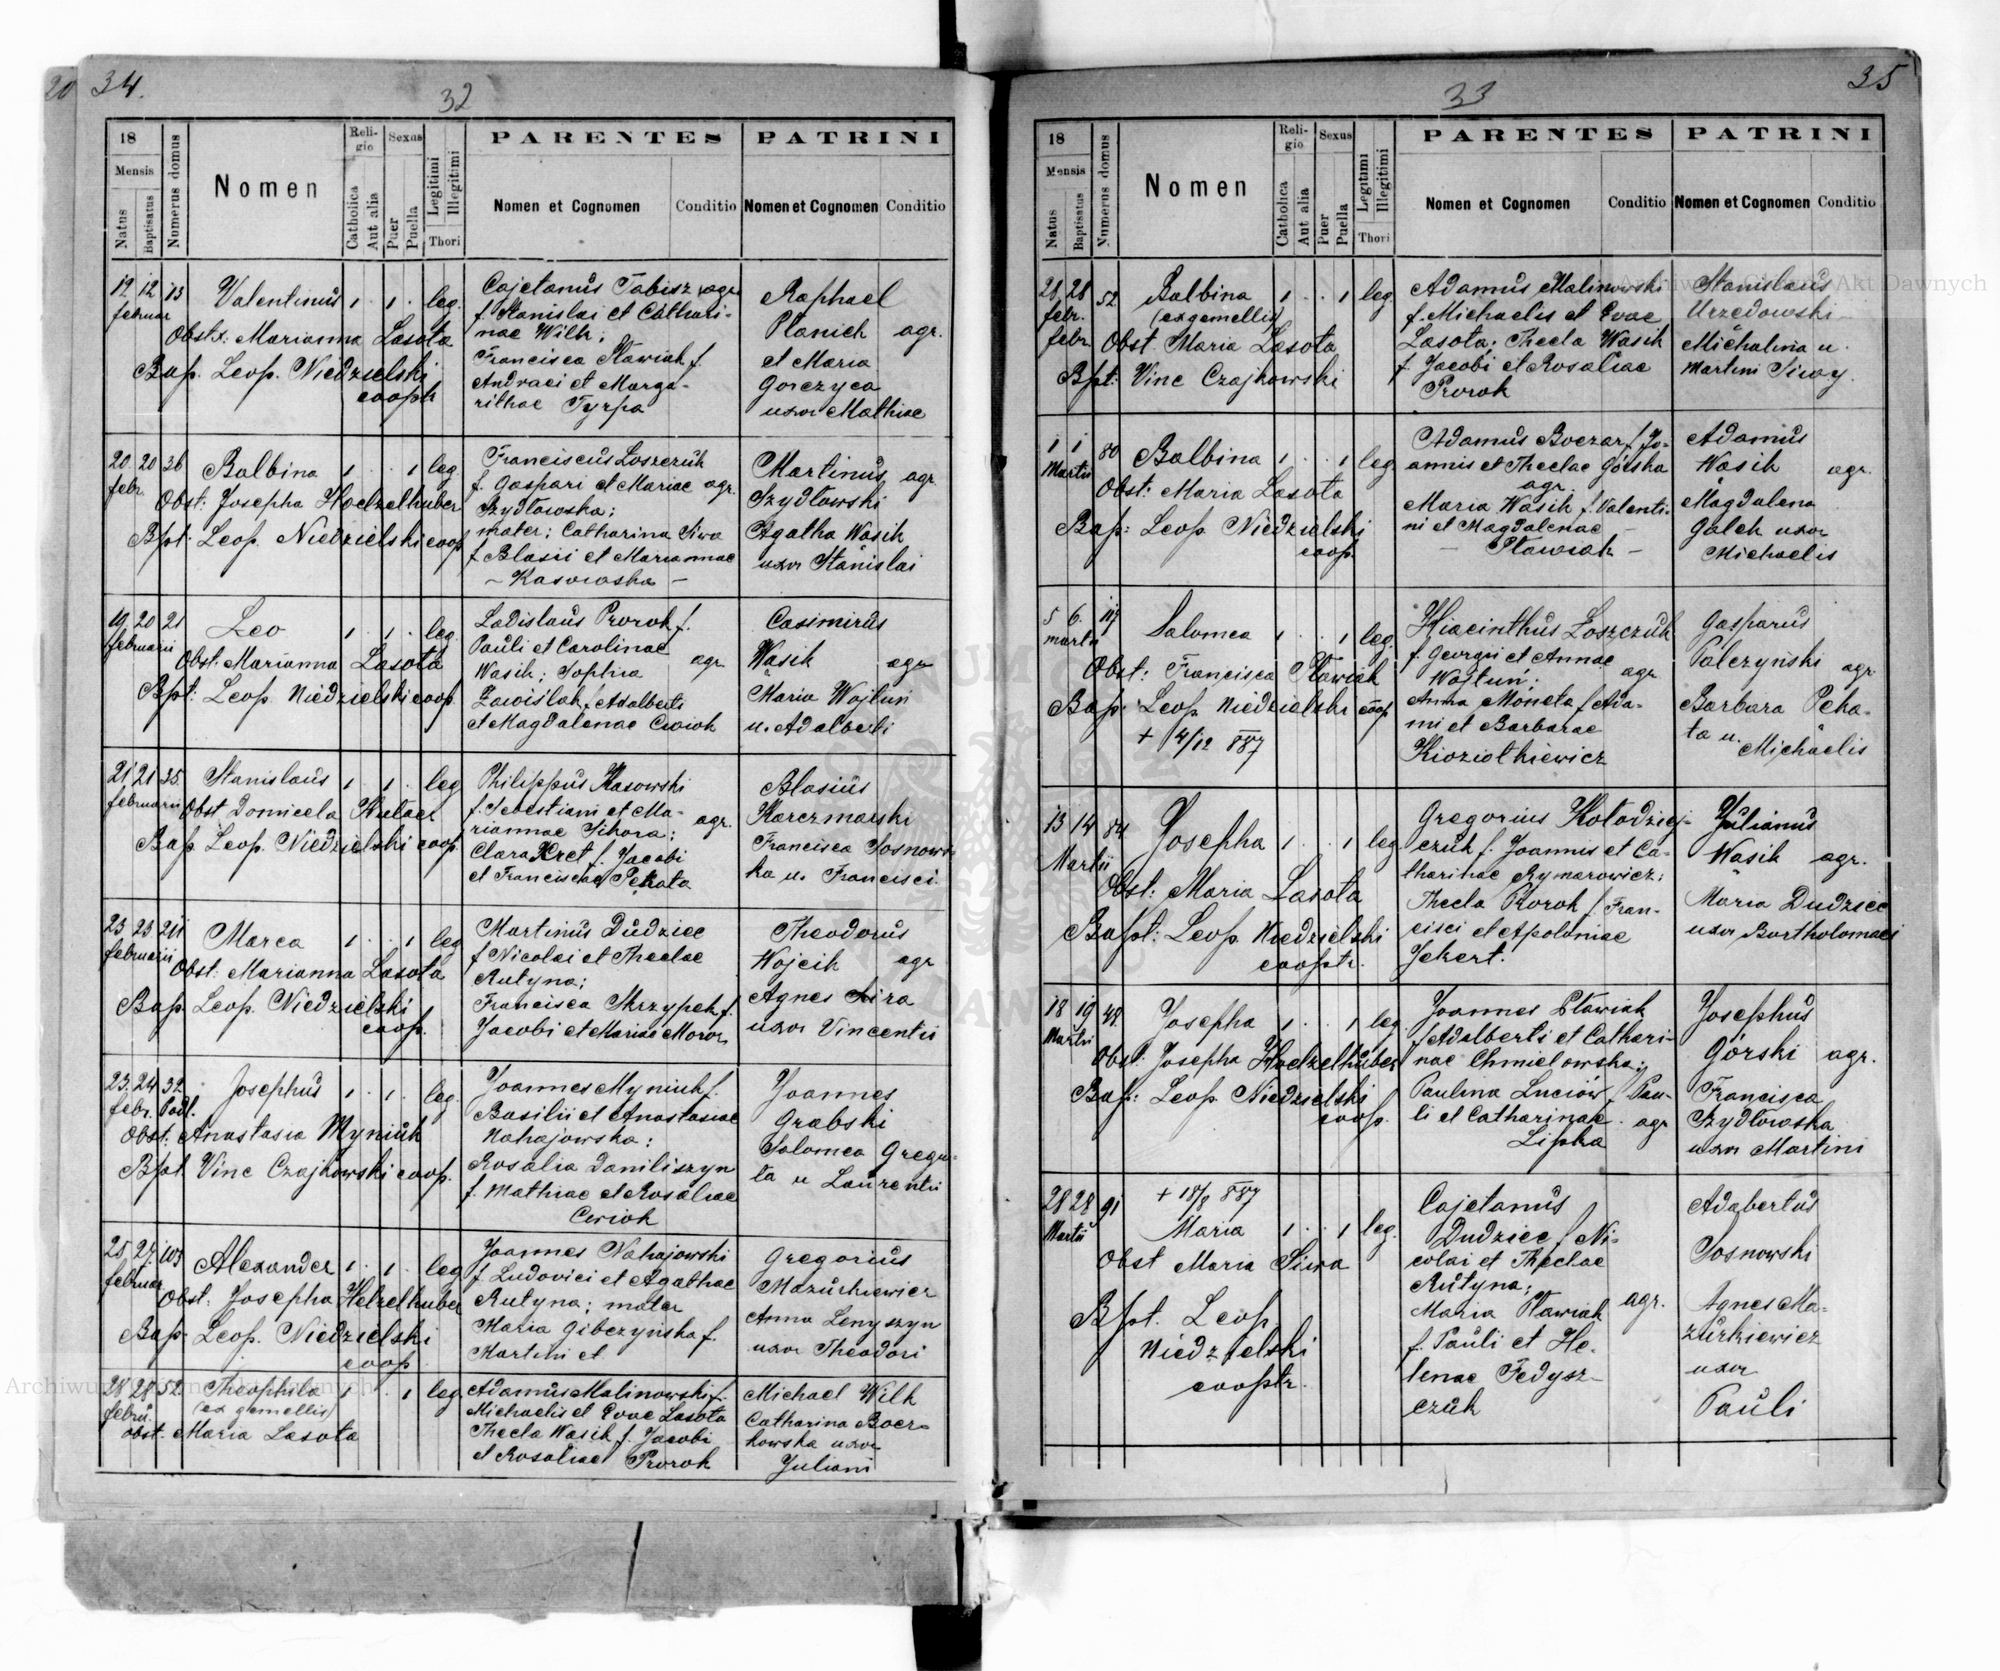 20 34.
32
18
Mensis
Natus
Baptisatus
Numerus domus
Nomen
Religio
Catholica
Aut alia
Sexus
Puer
Puella
Legitimi
Illegitimi
Thori
PARENTES
Nomen et Cognomen
Conditio
PATRINI
Nomen et Cognomen
Conditio
12 12 13 Valentinus 1 . 1 . leg.
februar
Obstx: Marianna Lasota
Bap. Leop. Niedzielski
cooptr
Cajetanus Tabisz agr
f. Stanislai et Cathari-
nae Wilk;
Francisca Pławiak f.
Andraei et Marga-
rithae Tyrpa
Raphael
Ptanich agr.
et Maria
Gorczyca
uxor Mathiae
20 20 36 Balbina 1 . . 1 leg.
febr.
Obst: Josepha Hoelzelhuber
Bpt: Leop. Niedzielski coop
Franciscus Łoszczuk
f. Gaspari et Mariae agr.
Szydłowska;
mater: Catharina Siwa
f. Blasii et Mariannae
– Kasowska –
Martinus agr.
Szydłowski
Agatha Wasik
uxor Stanislai
19 20 21 Leo 1 . 1 . leg.
februarii
Obst. Marianna Lasota
Bpt: Leop. Niedzielski coop.
Ladislaus Prorok f.
Pauli et Carolinae
Wasik; Sophia agr
Zawiślak f. Adalberti
et Magdalenae Cwiok
Casimirus
Wasik agr
Maria Wojtun
u. Adalberti
21 21 35 Stanislaus 1 . 1 . leg
februarii
Obst Domicela Hutacz
Bap Leop. Niedzielski coop.
Philippus Kasowski
f. Sebestiani et Ma-
riannae Sikora; agr.
Clara Kret f. Jacobi
et Franciscae Pekata
Blasius
Karczmarski
Francisca Sosnows-
ka u. Francisci
23 23 211 Marca 1 . . 1 leg
februarii
Obst: Marianna Lasota
Bap. Leop. Niedzielski
coop.
Martinus Dudziec
f Nicolai et Theclae
Rutyna;
Francisca Skrzypek f.
Jacobi et Mariae Moroz
Theodorus
Wojcik agr
Agnes Sira
uxor Vincentii
23 24 32 Josephus 1 . 1 . leg.
febr. Podl.
Obst: Anastasia Myniuk
Bpt Vinc Czajkowski coop.
Joannes Myniuk f.
Basilii et Anastasiae
Nahajowska;
Rosalia Daniliszyn
f. Mathiae et Rosaliae
Cwiok
Joannes
Grabski
Salomea Gregu-
ła u Laurentii
25 27 103 Alexander 1 . 1 . leg
februar
Obst: Josepha Helzelhuber
Bap. Leop. Niedzielski
coop
Joannes Nahajowski
f. Ludovici et Agathae
Rutyna; mater
Maria Gibczyńska f.
Martini et
Gregorius
Mazurkiewicz
Anna Lenyszyn
uxor Theodori
28 28 52 Theophila 1 . . 1 leg
febru.
(ex gemellis)
obst. Maria Lasota
Adamus Malinowski f.
Michaelis et Evae Lasota
Thecla Wasik f. Jacobi
et Rosaliae Prorok
Michael Wilk
Catharina Boer-
kowska uxor
Juliani
35
33
18
Mensis
Natus
Baptisatus
Numerus domus
Nomen
Religio
Catholica
Aut alia
Sexus
Puer
Puella
Legitimi
Illegitimi
Thori
PARENTES
Nomen et Cognomen
Conditio
PATRINI
Nomen et Cognomen
Conditio
28 28 52 Balbina 1 . . 1 leg
febr. (ex gemellis)
febr. Obst Maria Lasota
Bpt: Vinc Czajkowski
Adamus Malinowski
f. Michaelis et Evae
Lasota; Thecla Wasik
f. Jacobi et Rosaliae
Prorok
Stanislaus
Urzędowski
Michalina u.
Martini Siwy.
1 1 80 Balbina 1 . . 1 leg
Martii
Obst: Maria Lasota
Bap: Leop. Niedzielski
coop.
Adamus Boczar f. Jo-
annis et Theclae Górska
agr.
Maria Wasik f. Valenti-
ni et Magdalenae –
– Pławiak –
Adamus
Wasik agr.
Magdalena
Gałek uxor
Michaelis
5 6 117 Salomea 1 . . 1 leg
martii
Obst: Francisca Pławiak
Bap. Leop. Niedzielski coop
+ 4/12 887
Hiacinthus Łoszczuk
f. Georgii et Annae
Wojtuń; agr
Anna Moneta f Ada-
mi et Barbarae
Kioziołkiewicz
Gasparus
Pałczyński agr
Barbara Peka-
ta u.
Michaelis
13 14 84 Josepha 1 . . 1 leg
Martii
Obst: Maria Lasota
Bapt: Leop. Niedzielski
cooptr.
Gregorius Kołodziej-
czuk f. Joannis et Ca-
tharinae Rymarowicz;
Thecla Prorok f. Fran-
cisci et Apoloniae
Jekert.
Julianus
Wasik agr.
Maria Dudziec
uxor Bartholomaei
18 19 48 Josepha 1 . . 1 leg
Martii
Obst: Josepha Hoelzelhuber
Bap: Leop. Niedzielski
coop.
Joannes Pławiak
f Adalberti et Cathari-
nae Chmielowska;
Paulina Luciów f. Pau-
li et Catharinae agr
Lipka
Josephus
Górski agr.
Francisca
Szydłowska
uxor Martini
+ 18/8 887
28 28 91 Maria 1 . . 1 leg.
Martii
Obst Maria Siwa
Bpt. Leop.
Niedzielski
cooptr.
Cajetanus
Dudziec f. Ni-
colai et Theclae
Rutyna;
Maria Pławiak agr.
f. Pauli et He-
lenae Fedysz-
czuk
Adabertus
Sosnowski
Agnes Ma-
zurkiewicz
uxor
Pauli